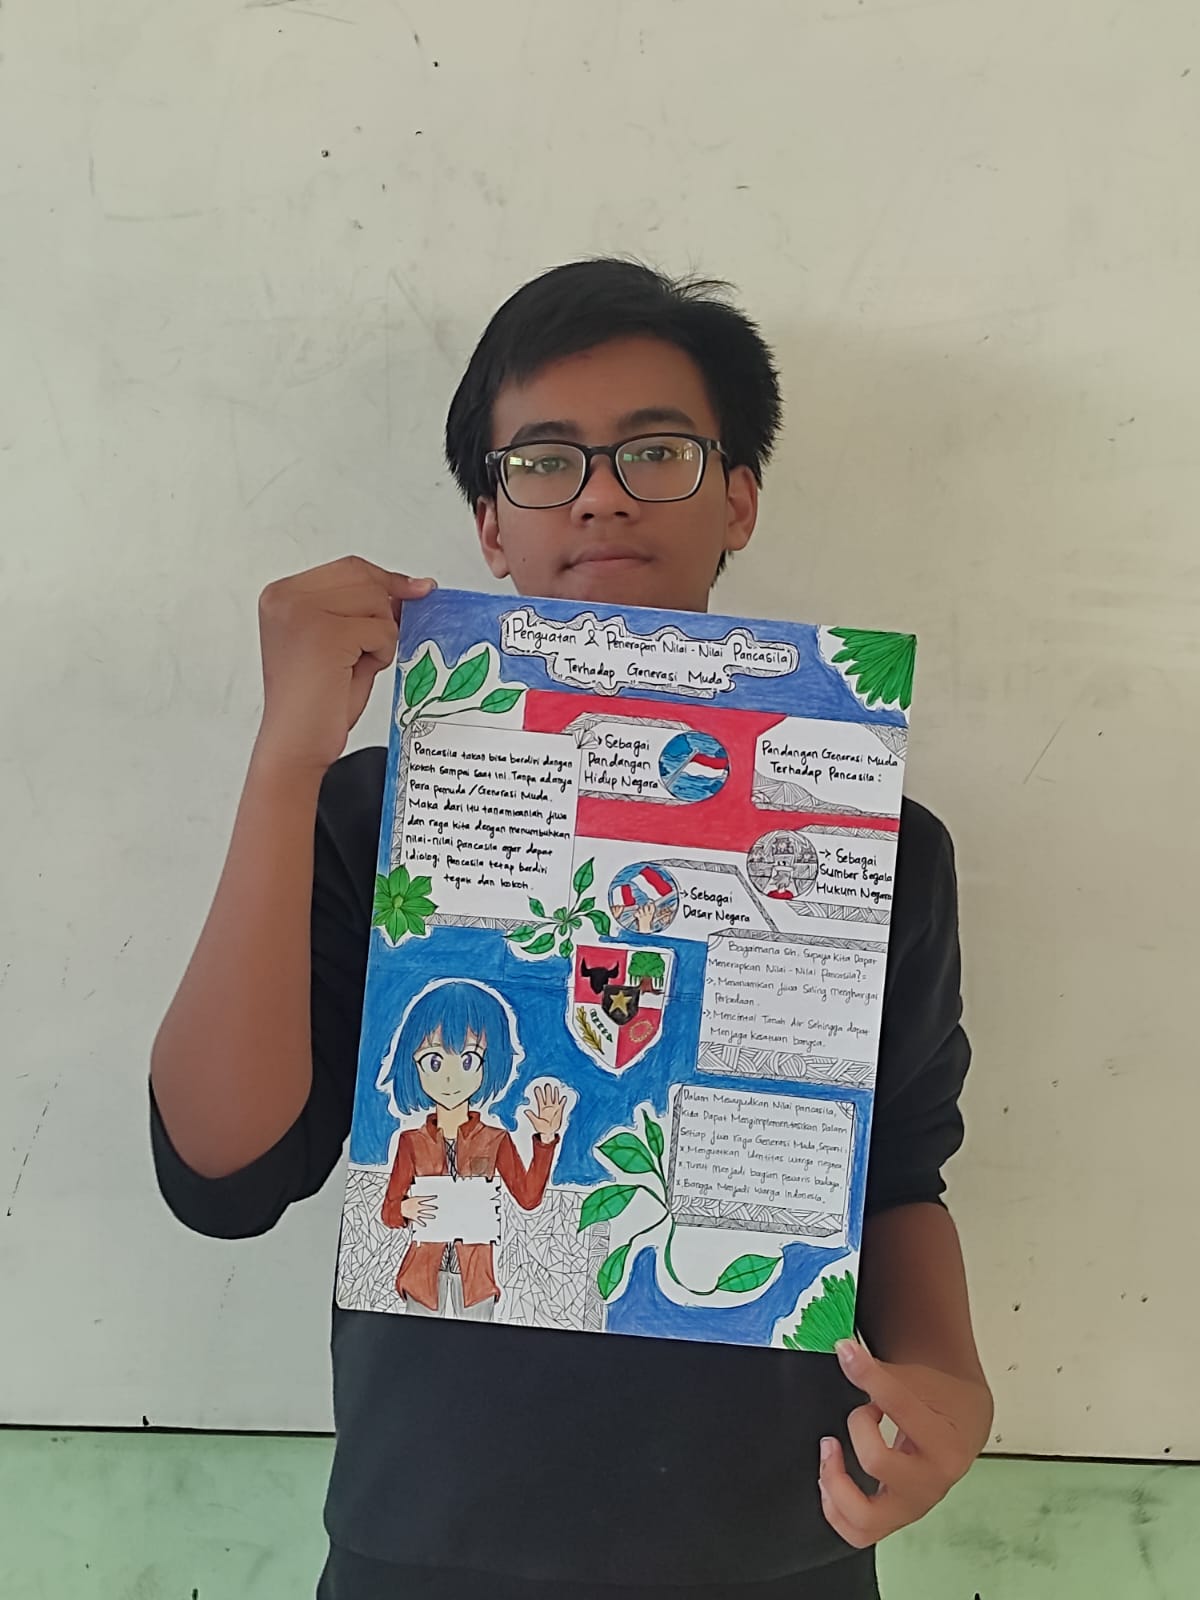 Penguatan & Penerapan Nilai-Nilai Pancasila
Terhadap Generasi Muda
Pancasila takan bisa berdiri dengan
kokoh sampai saat ini. Tanpa adanya
Para pemuda/Generasi Muda.
Maka dari itu tanamkanlah jiwa
dan raga kita dengan menumbuhkan
nilai-nilai pancasila agar dapat
Idiologi pancasila tetap berdiri
tegak dan kokoh.
→ Sebagai
Pandangan
Hidup Negara
Pandangan Generasi Muda
Terhadap Pancasila:
→ Sebagai
Sumber Segala
Hukum Negara
→ Sebagai
Dasar Negara
Bagaimana sih, Supaya Kita Dapat
Menerapkan Nilai-Nilai Pancasila?=
→, Menanamkan Jiwa Saling Menghargai
Perbedaan.
→, Mencintai Tanah Air Sehingga dapat
Menjaga kesatuan bangsa.
Dalam Mewujudkan Nilai pancasila,
Kita Dapat Mengimplementasikan Dalam
Setiap Jiwa raga Generasi Muda, Seperti:
*. Menguatkan identitas warga negara.
*. Turut Menjadi bagian pewaris budaya.
*. Bangga Menjadi warga Indonesia.